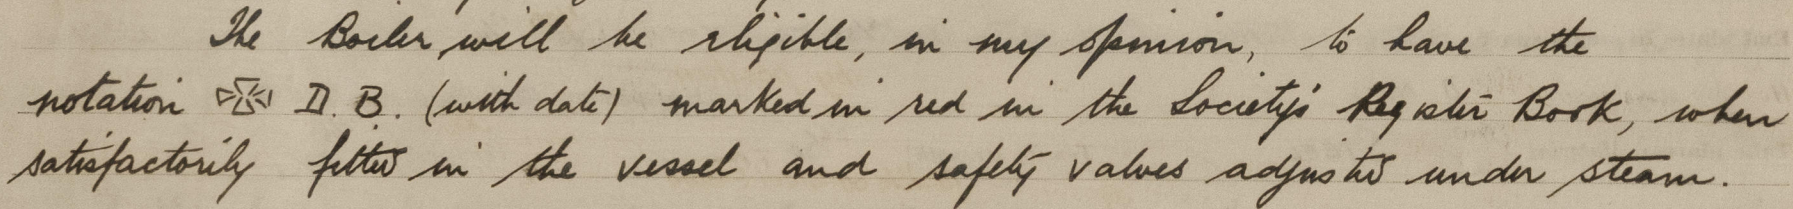 The Boiler will be eligible, in my opinion, to have the
notation ✠ D.B. (with date) marked in red in the Society's Register Book, when
satisfactorily fitted in the vessel and safety valves adjusted under steam.